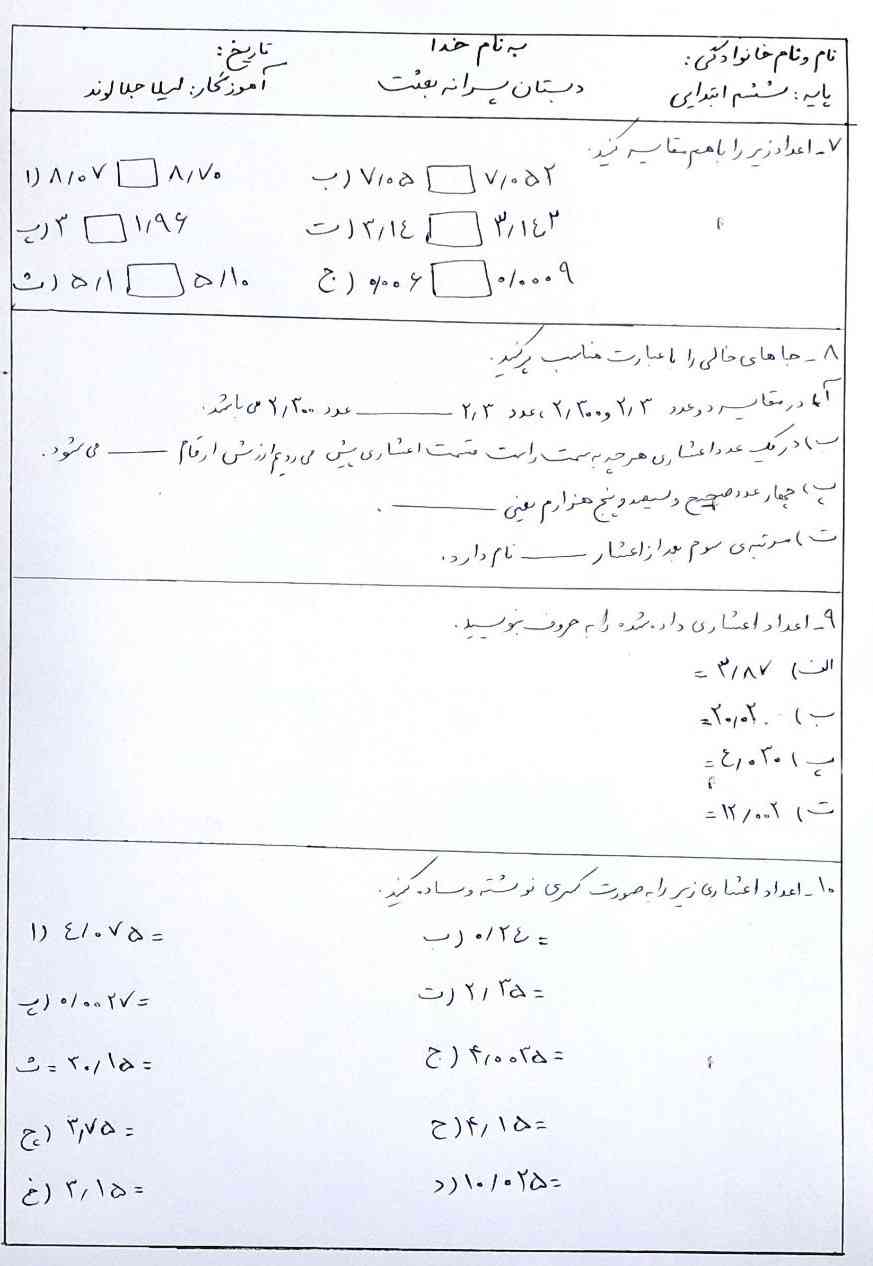 به نام خدا
نام و نام خانوادگی:
تاریخ:
پایه: ششم ابتدایی
دبستان پسرانه بعثت
آموزگار: لیلا جلالوند
۷- اعداد زیر را باهم مقایسه کنید.
۱) ۸/۰۷ □ ۸/۷۰
ب) ۷/۰۵ □ ۷/۰۵۲
پ) ۳ □ ۱/۹۶
ت) ۳/۱٤ □ ۳/۱٤۳
ث) ۵/۱ □ ۵/۱۰
ج) ۰/۰۰۶ □ ۰/۰۰۰۹
۸- جاهای خالی را با عبارت مناسب پر کنید.
آ) در مقایسه دو عدد ۲/۳ و ۲/۳۰۰، عدد ۲/۳ ______ عدد ۲/۳۰۰ می باشد.
ب) در یک عدد اعشاری هر چه به سمت راست قسمت اعشاری پیش می رویم ارزش ارقام ____ می شود.
پ) چهار عدد صحیح و سیصد و پنج هزارم یعنی ______ .
ت) مرتبه ی سوم بعد از اعشار ____ نام دارد.
۹- اعداد اعشاری داده شده را به حروف بنویسید.
الف) ۳/۸۷ =
ب) ۲۰/۰۲ =
پ) ٤/۰۳۰ =
ت) ۱۲/۰۰۲ =
۱۰- اعداد اعشاری زیر را به صورت کسری نوشته و ساده کنید.
۱) ٤/۰۷۵ =
ب) ۰/۲٤ =
پ) ۰/۰۰۲۷ =
ت) ۲/۳۵ =
ث = ۲۰/۱۵ =
ج) ۴/۰۰۲۵ =
چ) ۳/۷۵ =
ح) ۴/۱۵ =
خ) ۳/۱۵ =
د) ۱۰/۰۲۵ =